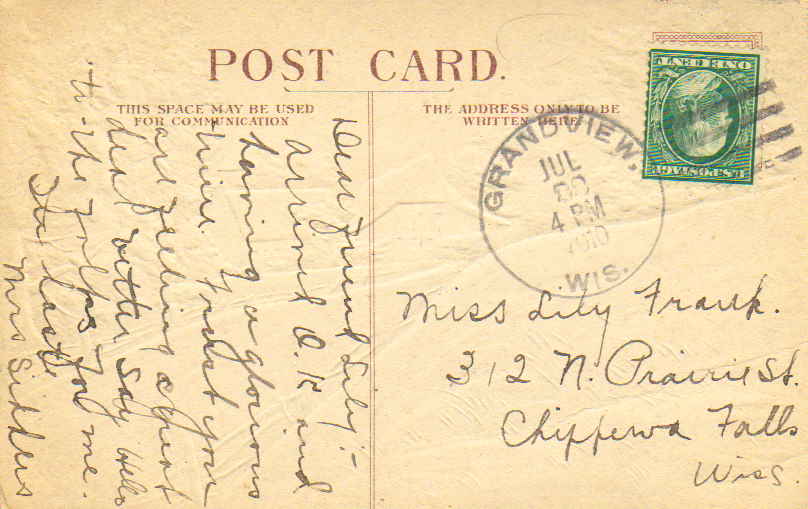 POST CARD.
THIS SPACE MAY BE USED
FOR COMMUNICATION
THE ADDRESS ONLY TO BE
WRITTEN HERE
GRANDVIEW.
JUL
4 PM
1910
WIS.
U.S. POSTAGE
ONE CENT
Dear friend Lily:-
Arrived O.K and
having a glorious
time. Trust you
are feeling a great
deal better. Say Hello
to the folks for me.
In haste
Mrs
Miss Lily Frank.
312 N. Prairie St.
Chippewa Falls
Wis.